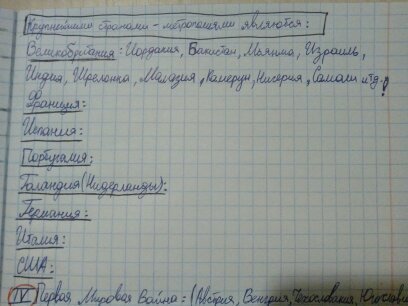 Крупнейшими странами-метрополиями являются:
Великобритания: Иордания, Пакистан, Мьянма, Израиль,
Индия, Шриланка, Малазия, Камерун, Нигерия, Сомали и т.д.
Франция:
Испания:
Португалия:
Голандия (Нидерланды):
Германия:
Италия:
США:
IV Первая Мировая Война = (Австрия, Венгрия, Чехословакия, Югослави